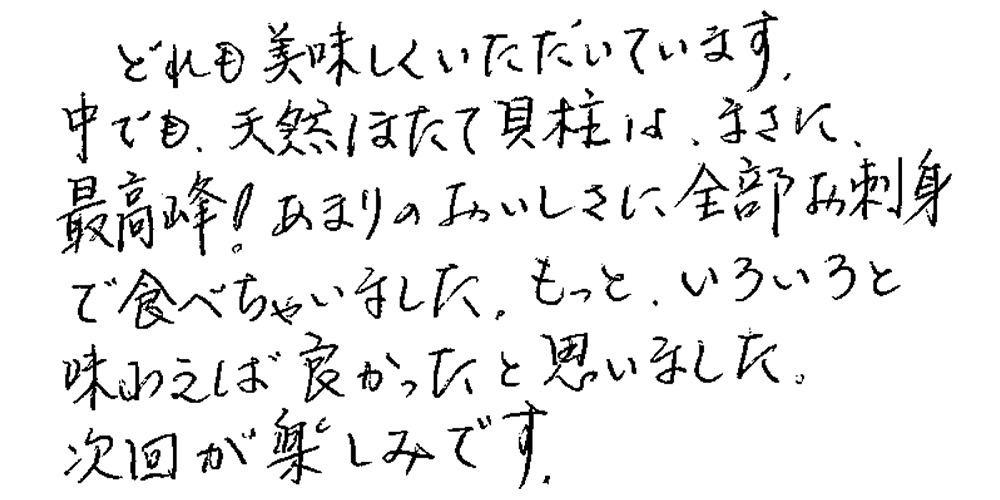 どれも美味しくいただいています。
中でも、天然ほたて貝柱は、まさに、
最高峰！あまりのおいしさに全部お刺身
で食べちゃいました。もっと、いろいろと
味わえば良かったと思いました。
次回が楽しみです。